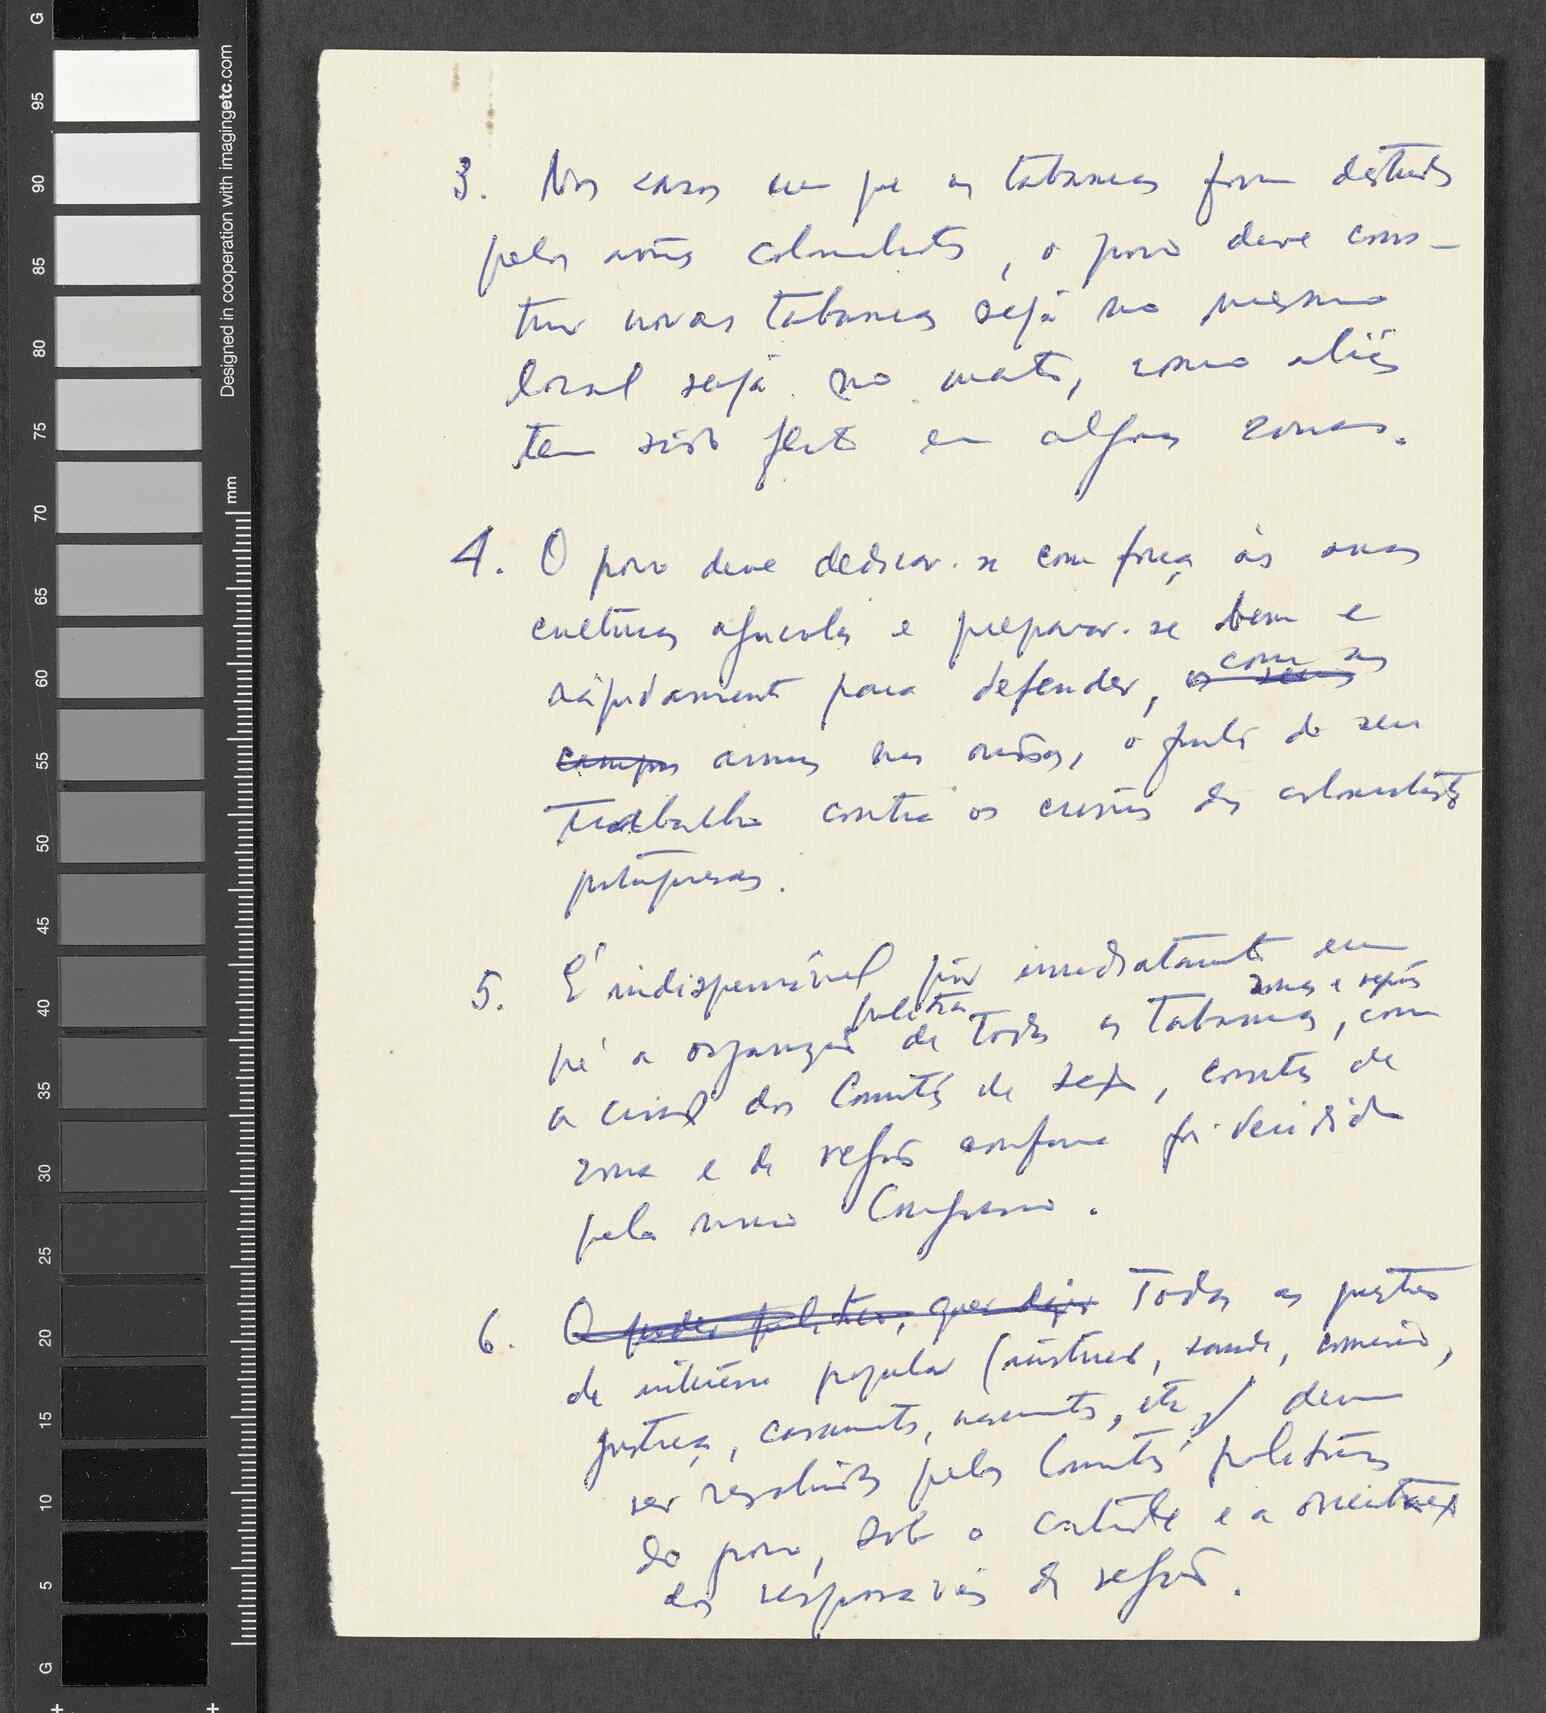 3. Nos casos em que as tabancas foram destruídas
pelos aviões colonialistas, o povo deve cons-
truir novas tabancas sejá no mesmo
local sejá no mato, como aliás
tem sido feito em algumas zonas.
4. O povo deve dedicar-se com força às suas
culturas agrícolas e preparar-se bem e
ràpidamente para defender, os seus com as
campos armas nas mãos, o fruto do seu
Trabalho contra os crimes dos colonialistas
portugueses.
5. É indispensável pôr imediatamente em
pé a organização política de todas as tabancas, zonas e regiões, com
a criação dos Comités de secção, comités de
zona e de região conforme foi decidido
pelo nosso Congresso.
6. O poder político, quer dizer Todas as questões
de interesse popular (instrução, saúde, comércio,
justiça, casamentos, nascimentos, etc.) devem
ser resolvidas pelos Comités políticos
do povo, sob o controle e a orientação
dos responsáveis de região.
G
95
90
85
80
75
70
65
60
55
50
45
40
35
30
25
20
15
10
5
G
Designed in cooperation with imagingetc.com
mm